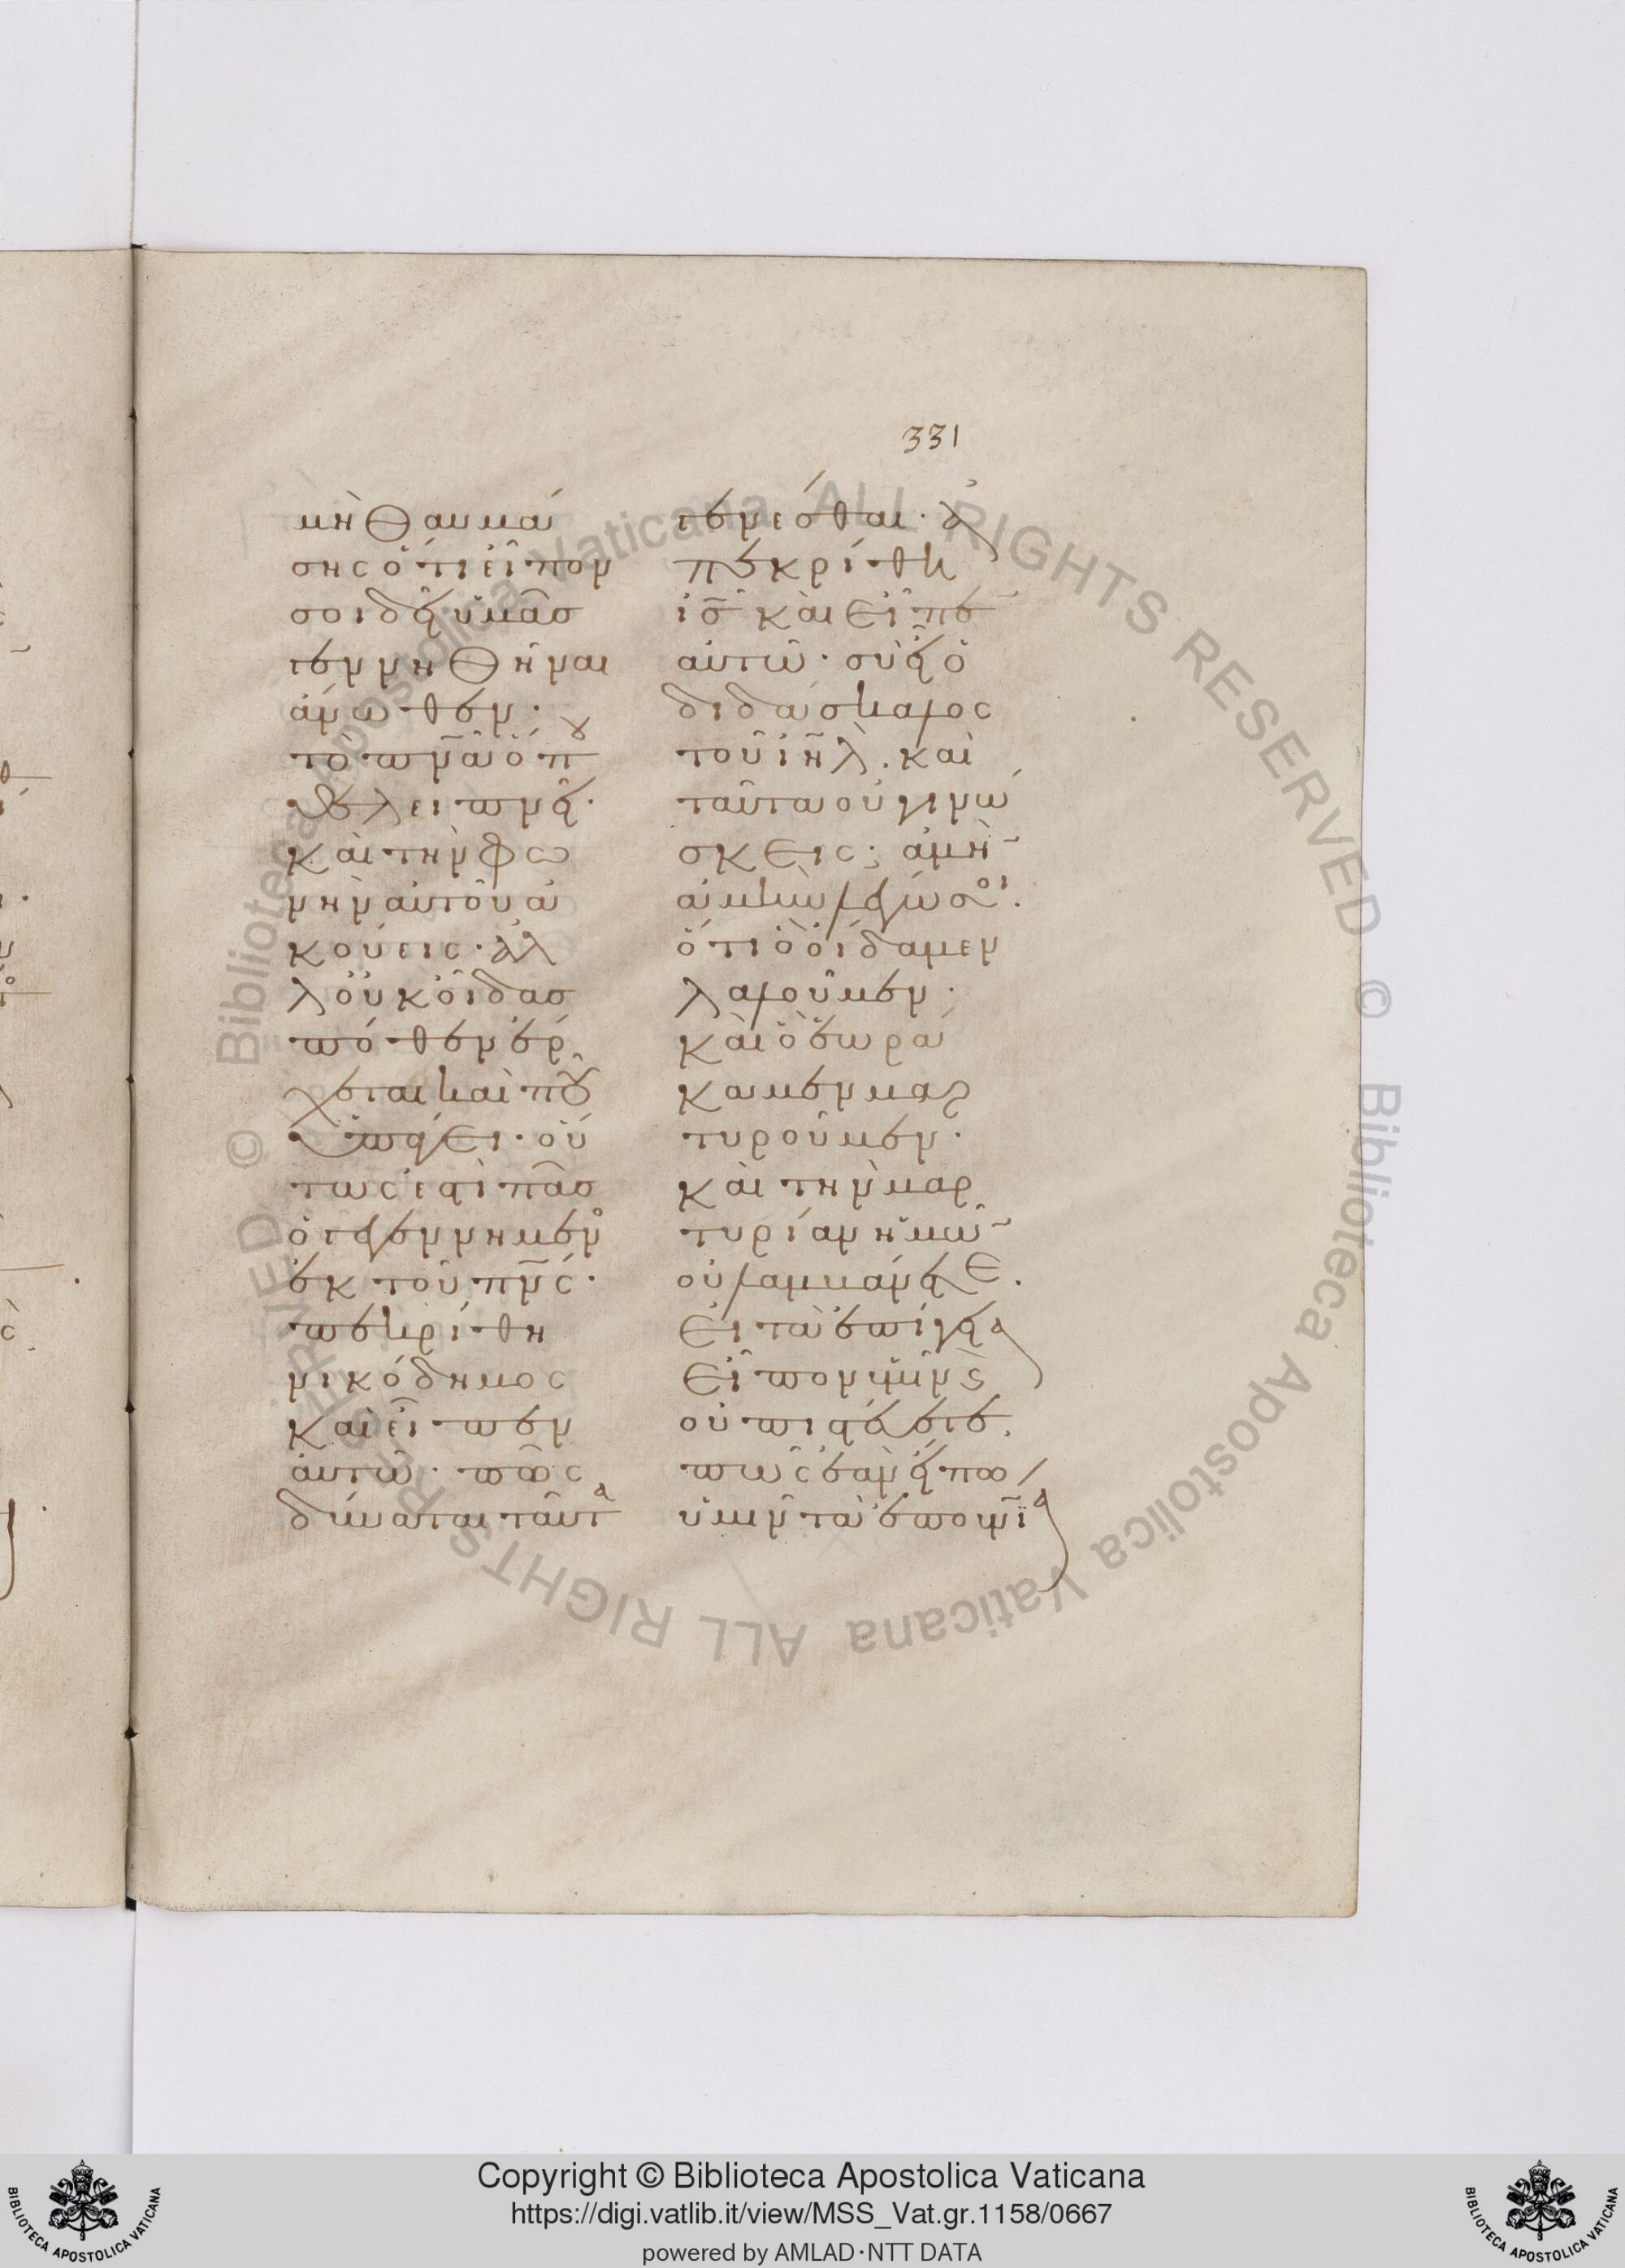 331
μὴ θαυμά
σης ὅτι εἶπον
σοι δεῖ ὑμᾶσ
γεννηθῆναι
ἄνωθεν·
τὸ πν̅ᾱ ὅπου
θέλει πνεῖ·
καὶ τὴν φω
νὴν αὐτοῦ ἀ
κούεις· ἀλ
λ' οὐκ οἶδασ
πόθεν ἔρ
χεται καὶ ποῦ
ὑπάγει· οὕ
τως ἐστὶ πᾶσ
ὁ γεγεννημένος
ἐκ τοῦ πν̅ς·
ἀπεκρίθη
νικόδημος
καὶ εἶπεν
αὐτῶ· πῶς
δύναται ταῦτα
γενέσθαι· ἀ
πεκρίθη
ις̅ καὶ εἶπε
αὐτῶ· σὺ εἶ ὁ
διδάσκαλος
τοῦ ιη̅λ. καὶ
ταῦτα οὐ γινώ
σκεις; ἀμὴν
ἀμὴν λέγω σοι·
ὅτι ὃ οἴδαμεν
λαλοῦμεν·
καὶ ὃ ἑωρά
καμεν μαρ
τυροῦμεν·
καὶ τὴν μαρ
τυρίαν ἡμῶν
οὐ λαμβάνετε.
Εἰ τὰ ἐπίγεια
εἶπον ὑμῖν καὶ
οὐ πιστεύετε.
πῶς ἐὰν εἴπω
ὑμῖν τὰ ἐπουράνια
Copyright © Biblioteca Apostolica Vaticana
https://digi.vatlib.it/view/MSS_Vat.gr.1158/0667
powered by AMLAD·NTT DATA
BIBLIOTECA APOSTOLICA VATICANA
BIBLIOTECA APOSTOLICA VATICANA
© Biblioteca Apostolica Vaticana ALL RIGHTS RESERVED
© Biblioteca Apostolica Vaticana ALL RIGHTS RESERVED